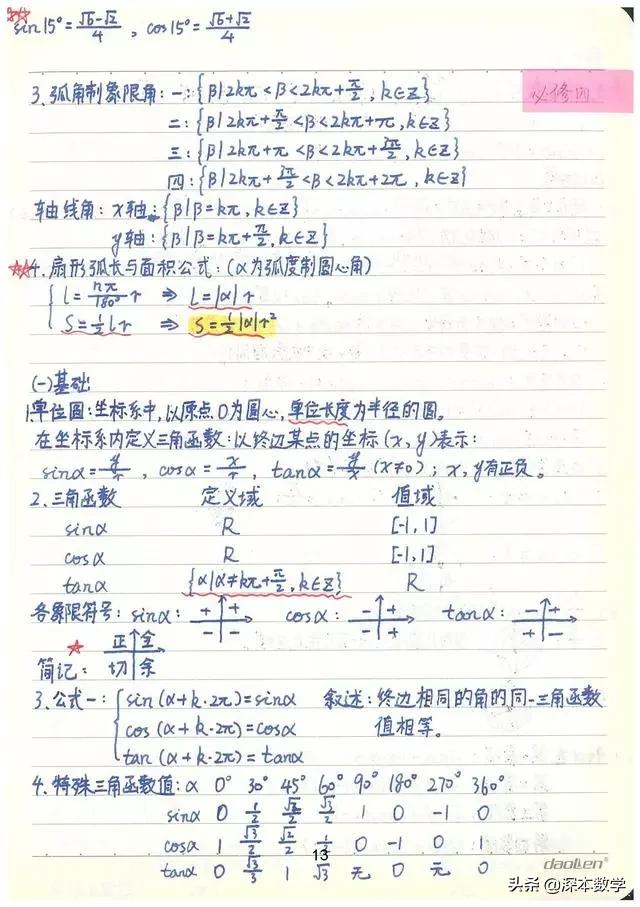 sin15°=(√6-√2)/4 , cos15°=(√6+√2)/4
必修四
3. 弧角制象限角:一:{β|2kπ<β<2kπ+π/2, k∈Z}
二:{β|2kπ+π/2<β<2kπ+π, k∈Z}
三:{β|2kπ+π<β<2kπ+3π/2, k∈Z}
四:{β|2kπ+3π/2<β<2kπ+2π, k∈Z}
轴线角:x轴:{β|β=kπ, k∈Z}
y轴:{β|β=kπ+π/2, k∈Z}
4. 扇形弧长与面积公式:(α为弧度制圆心角)
l=nπ/180° r ⇒ l=|α|r
S=1/2 lr ⇒ S=1/2|α|r²
(一)基础:
1.单位圆:坐标系中,以原点O为圆心,单位长度为半径的圆。
在坐标系内定义三角函数:以终边某点的坐标(x, y)表示:
sinα=y/r , cosα=x/r , tanα=y/x (x≠0); x, y有正负。
2. 三角函数 定义域 值域
sinα R [-1, 1]
cosα R [-1, 1]
tanα {α|α≠kπ+π/2, k∈Z} R
各象限符号:sinα: + + cosα: - + tanα: - +
- - - + + -
正 全
简记: 切 余
3. 公式一: sin(α+k·2π)=sinα 叙述:终边相同的角的同一三角函数
cos(α+k·2π)=cosα 值相等。
tan(α+k·2π)=tanα
4. 特殊三角函数值:α 0° 30° 45° 60° 90° 180° 270° 360°
sinα 0 1/2 √2/2 √3/2 1 0 -1 0
cosα 1 √3/2 √2/2 1/2 0 -1 0 1
13
tanα 0 √3/3 1 √3 无 0 无 0
daolien®
头条 @深本数学